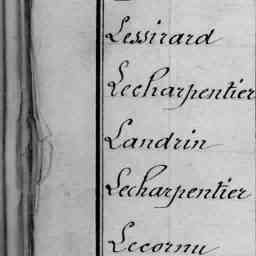 Lessirard
Lecharpentier
Landrin
Lecharpentier
Lecornu